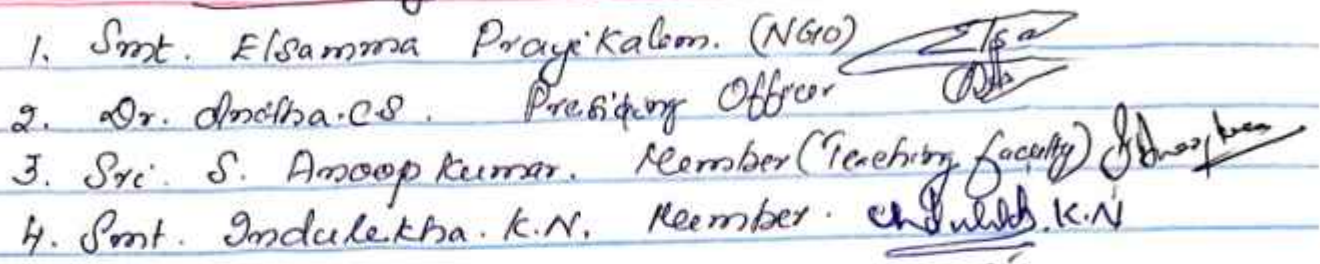 1. Smt. Elsamma Prayikalam. (NGO) Elsa
2. Dr. Anitha.C.S. Presiding Officer
3. Sri. S. Anoop Kumar. Member (Teaching faculty)
4. Smt. Indulekha. K.N. Member. K.N